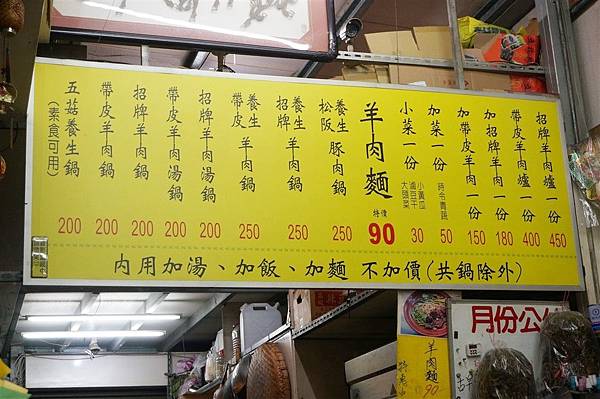 招牌羊肉爐 450
帶皮羊肉爐 400
加招牌羊肉一份 180
加帶皮羊肉一份 150
加菜一份 時令青蔬 50
小菜一份 小黃瓜 滷百干 大頭菜 30
羊肉麵 特價 90
養生松阪豚肉鍋 250
養生招牌羊肉鍋 250
養生帶皮羊肉鍋 250
招牌羊肉湯鍋 200
帶皮羊肉湯鍋 200
招牌羊肉鍋 200
帶皮羊肉鍋 200
五菇養生鍋 (素食可用) 200
內用加湯、加飯、加麵 不加價(共鍋除外)
羊肉麵
90
月份公